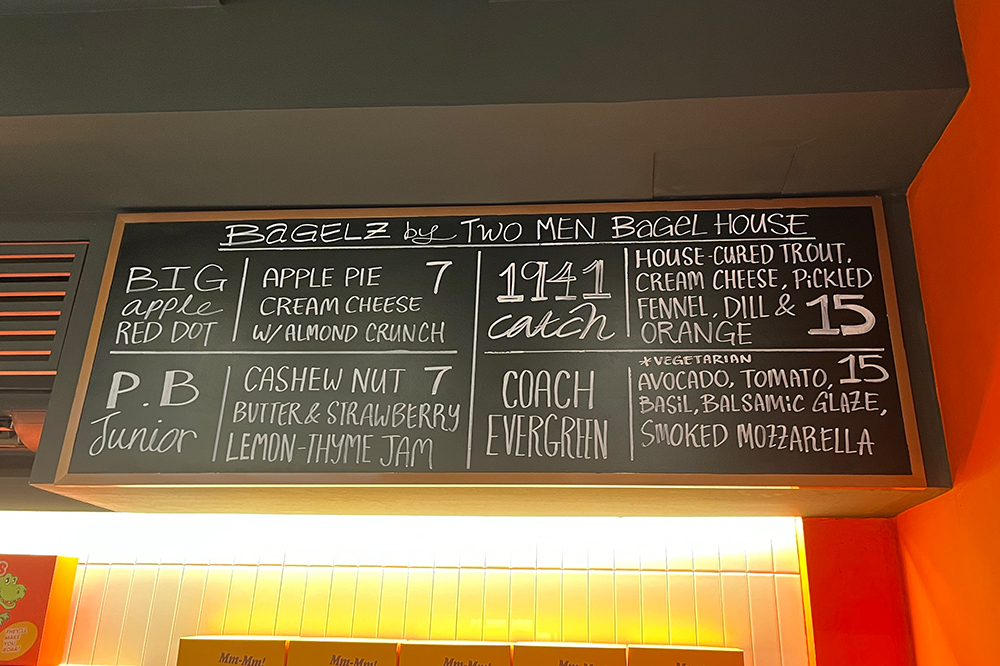 BAGELZ by TWO MEN BAGEL HOUSE
BIG
apple
RED DOT
APPLE PIE 7
CREAM CHEESE
W/ ALMOND CRUNCH
P.B
Junior
CASHEW NUT 7
BUTTER & STRAWBERRY
LEMON-THYME JAM
1941
catch
HOUSE-CURED TROUT,
CREAM CHEESE, PICKLED
FENNEL, DILL & 15
ORANGE
COACH
EVERGREEN
*VEGETARIAN
AVOCADO, TOMATO, 15
BASIL, BALSAMIC GLAZE,
SMOKED MOZZARELLA
Mm-Mm!
Mm-Mm!
Mm-Mm!
Mm-Mm!
Mm-Mm!